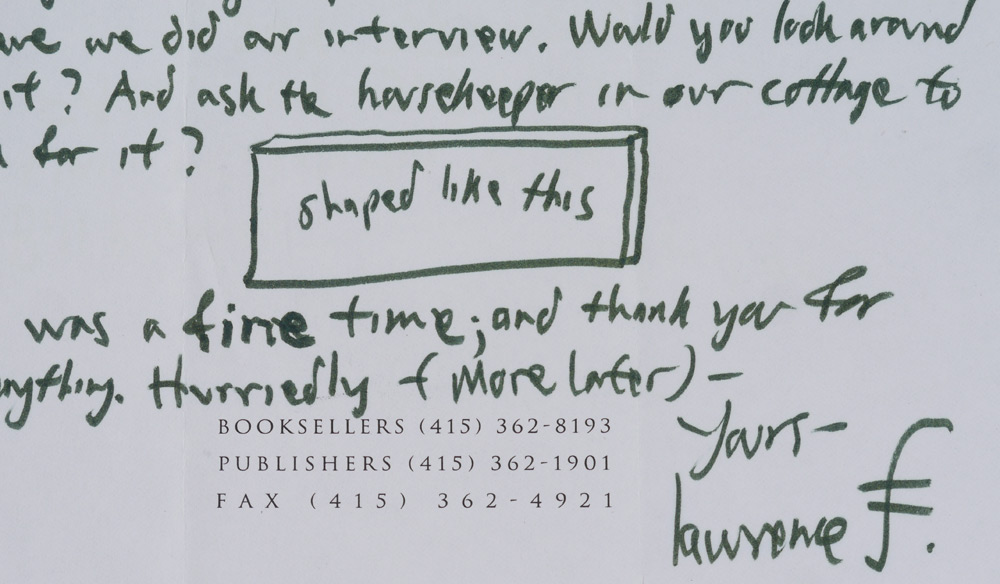 we did our interview. Would you look around
it? And ask the housekeeper in our cottage to
for it?
shaped like this
was a fine time; and thank you for
Hurriedly + (More later) –
BOOKSELLERS (415) 362-8193
PUBLISHERS (415) 362-1901
FAX (415) 362-4921
Yours –
Lawrence F.